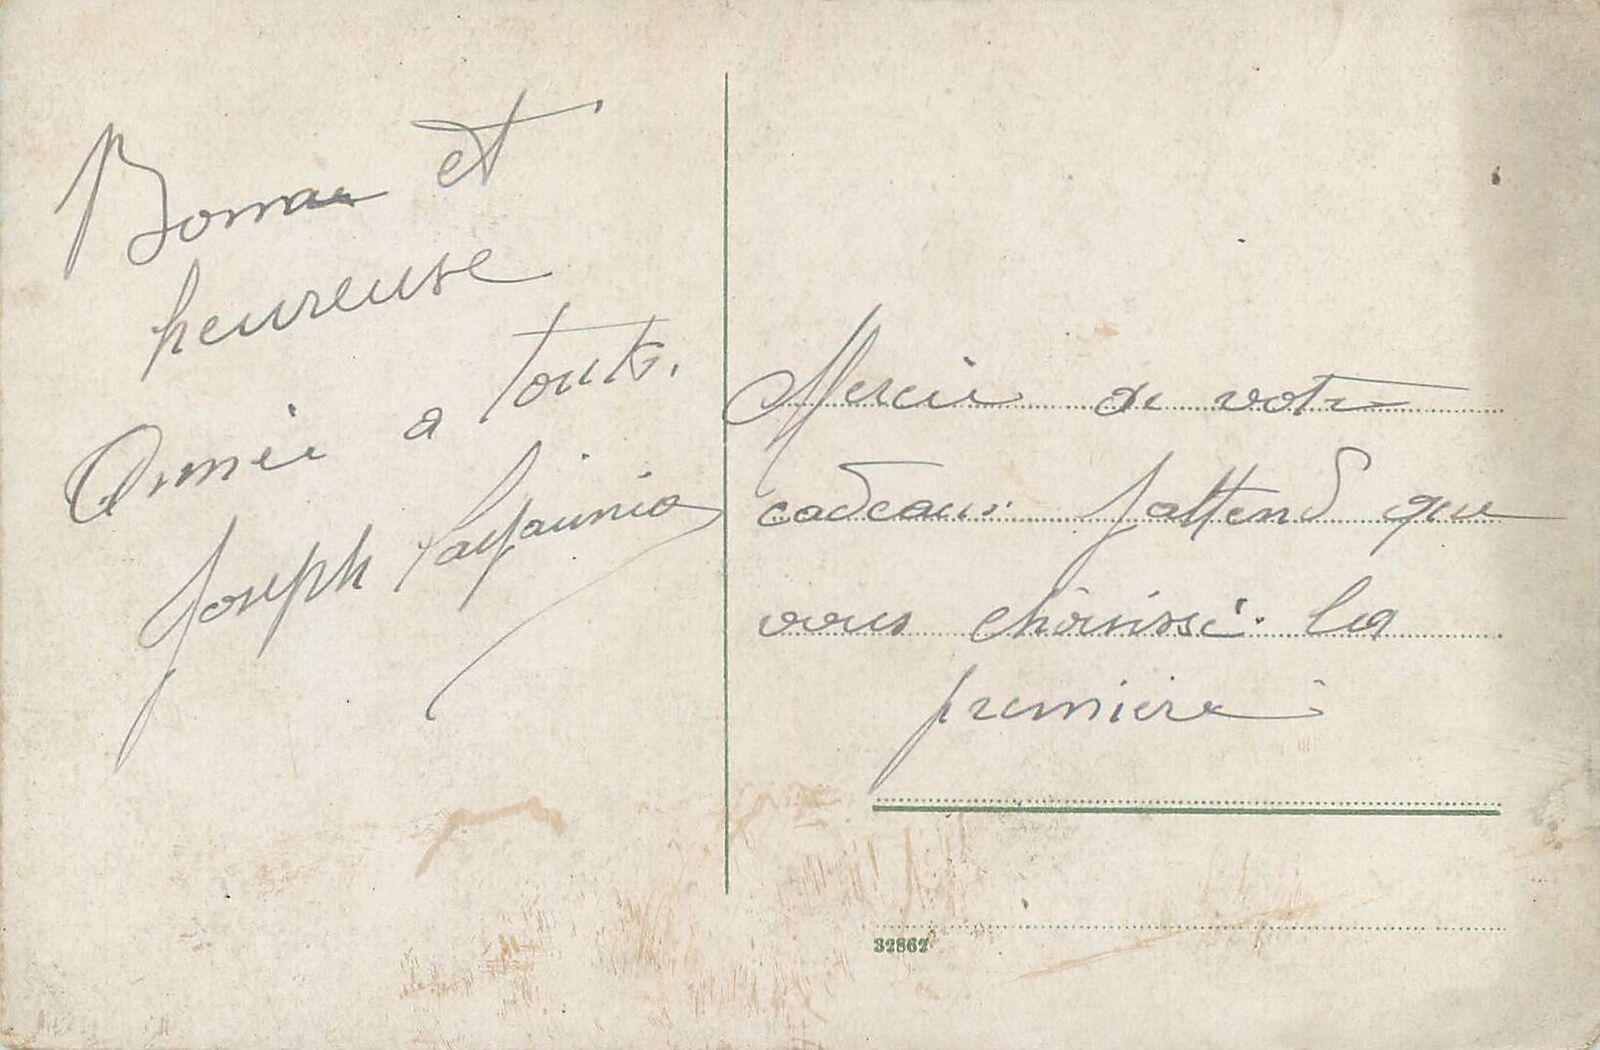 Bonne et
heureuse
Année a toute.
Joseph
Mercie de votre
cadeaux. J'attend que
vous choisissé. les
première
32867